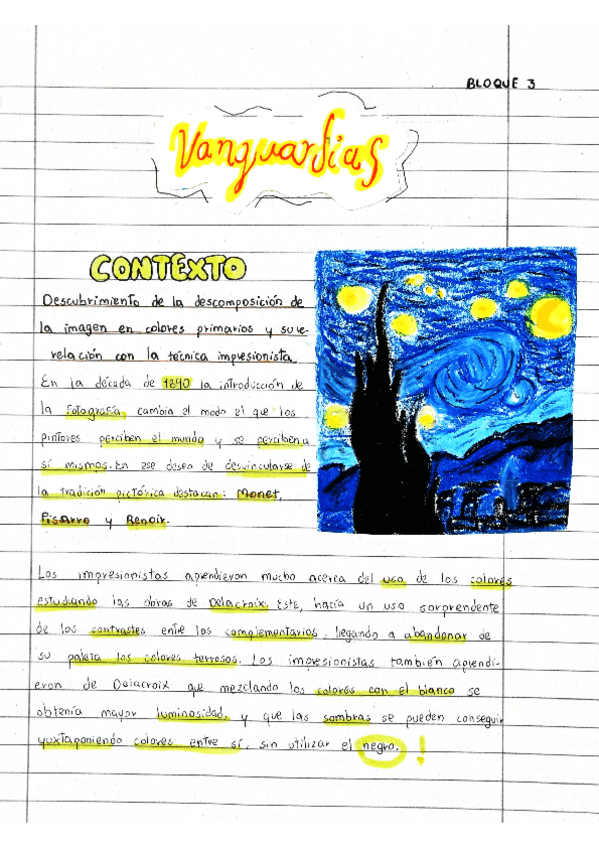 BLOQUE 3
Vanguardias
CONTEXTO
Descubrimiento de la descomposición de
la imagen en colores primarios y su re-
relación con la técnica impresionista.
En la década de 1840 la introducción de
la fotografía, cambia el modo el que los
pintores perciben el mundo y se perciben a
sí mismos. En ese deseo de desvincularse de
la tradición pictórica destacan: Monet,
Pisarro y Renoir.
Los impresionistas aprendieron mucho acerca del uso de los colores
estudiando las obras de Delacroix. Este, hacía un uso sorprendente
de los contrastes entre los complementarios, llegando a abandonar de
su paleta los colores terrosos. Los impresionistas también aprendi-
eron de Delacroix que mezclando los colores con el blanco se
obtenía mayor luminosidad, y que las sombras se pueden conseguir
yuxtaponiendo colores entre sí, sin utilizar el negro. !